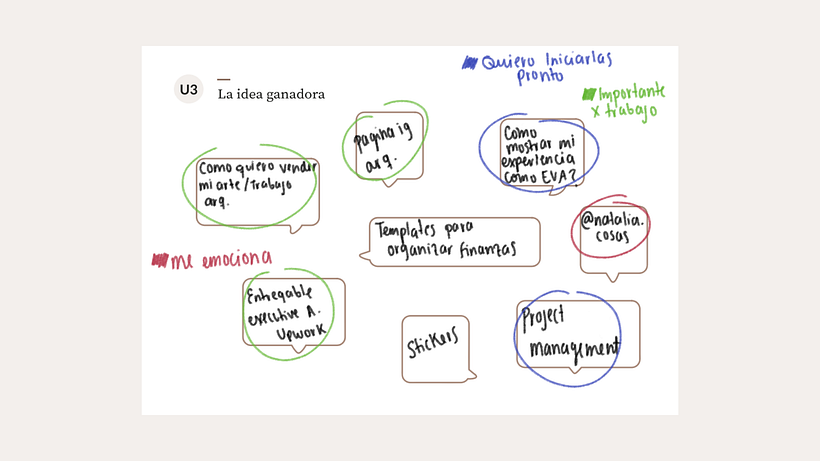 U3
La idea ganadora
Quiero Iniciarlas
pronto
Importante
x trabajo
pagina ig
arq.
Como
mostrar mi
experiencia
como EVA?
Como quiero vender
mi arte/trabajo
arq.
@natalia.
cosas
Templates para
organizar finanzas
me emociona
Entregable
executive A.
Upwork
Stickers
Project
management